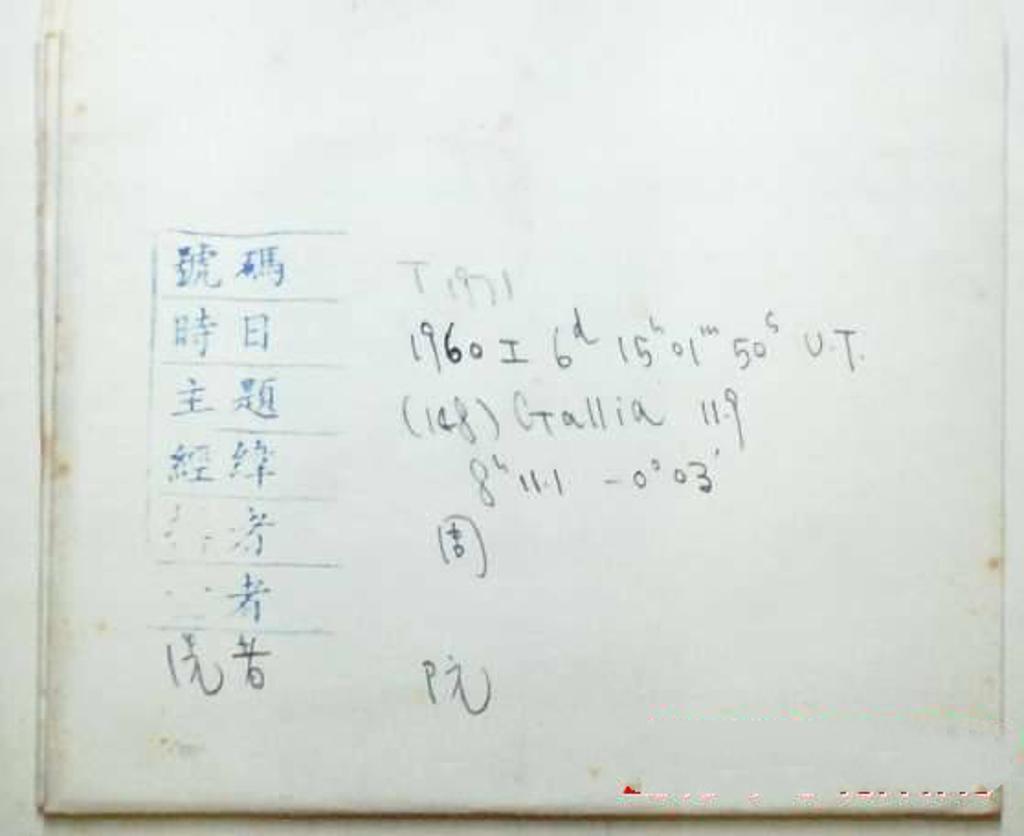 號碼 T 1971
時日 1960 I 6ᵈ 15ʰ 01ᵐ 50ˢ U.T.
主題 (148) Gallia 11.9
經緯 8ʰ 11.1 -0°03'
者 周
者
者 阮